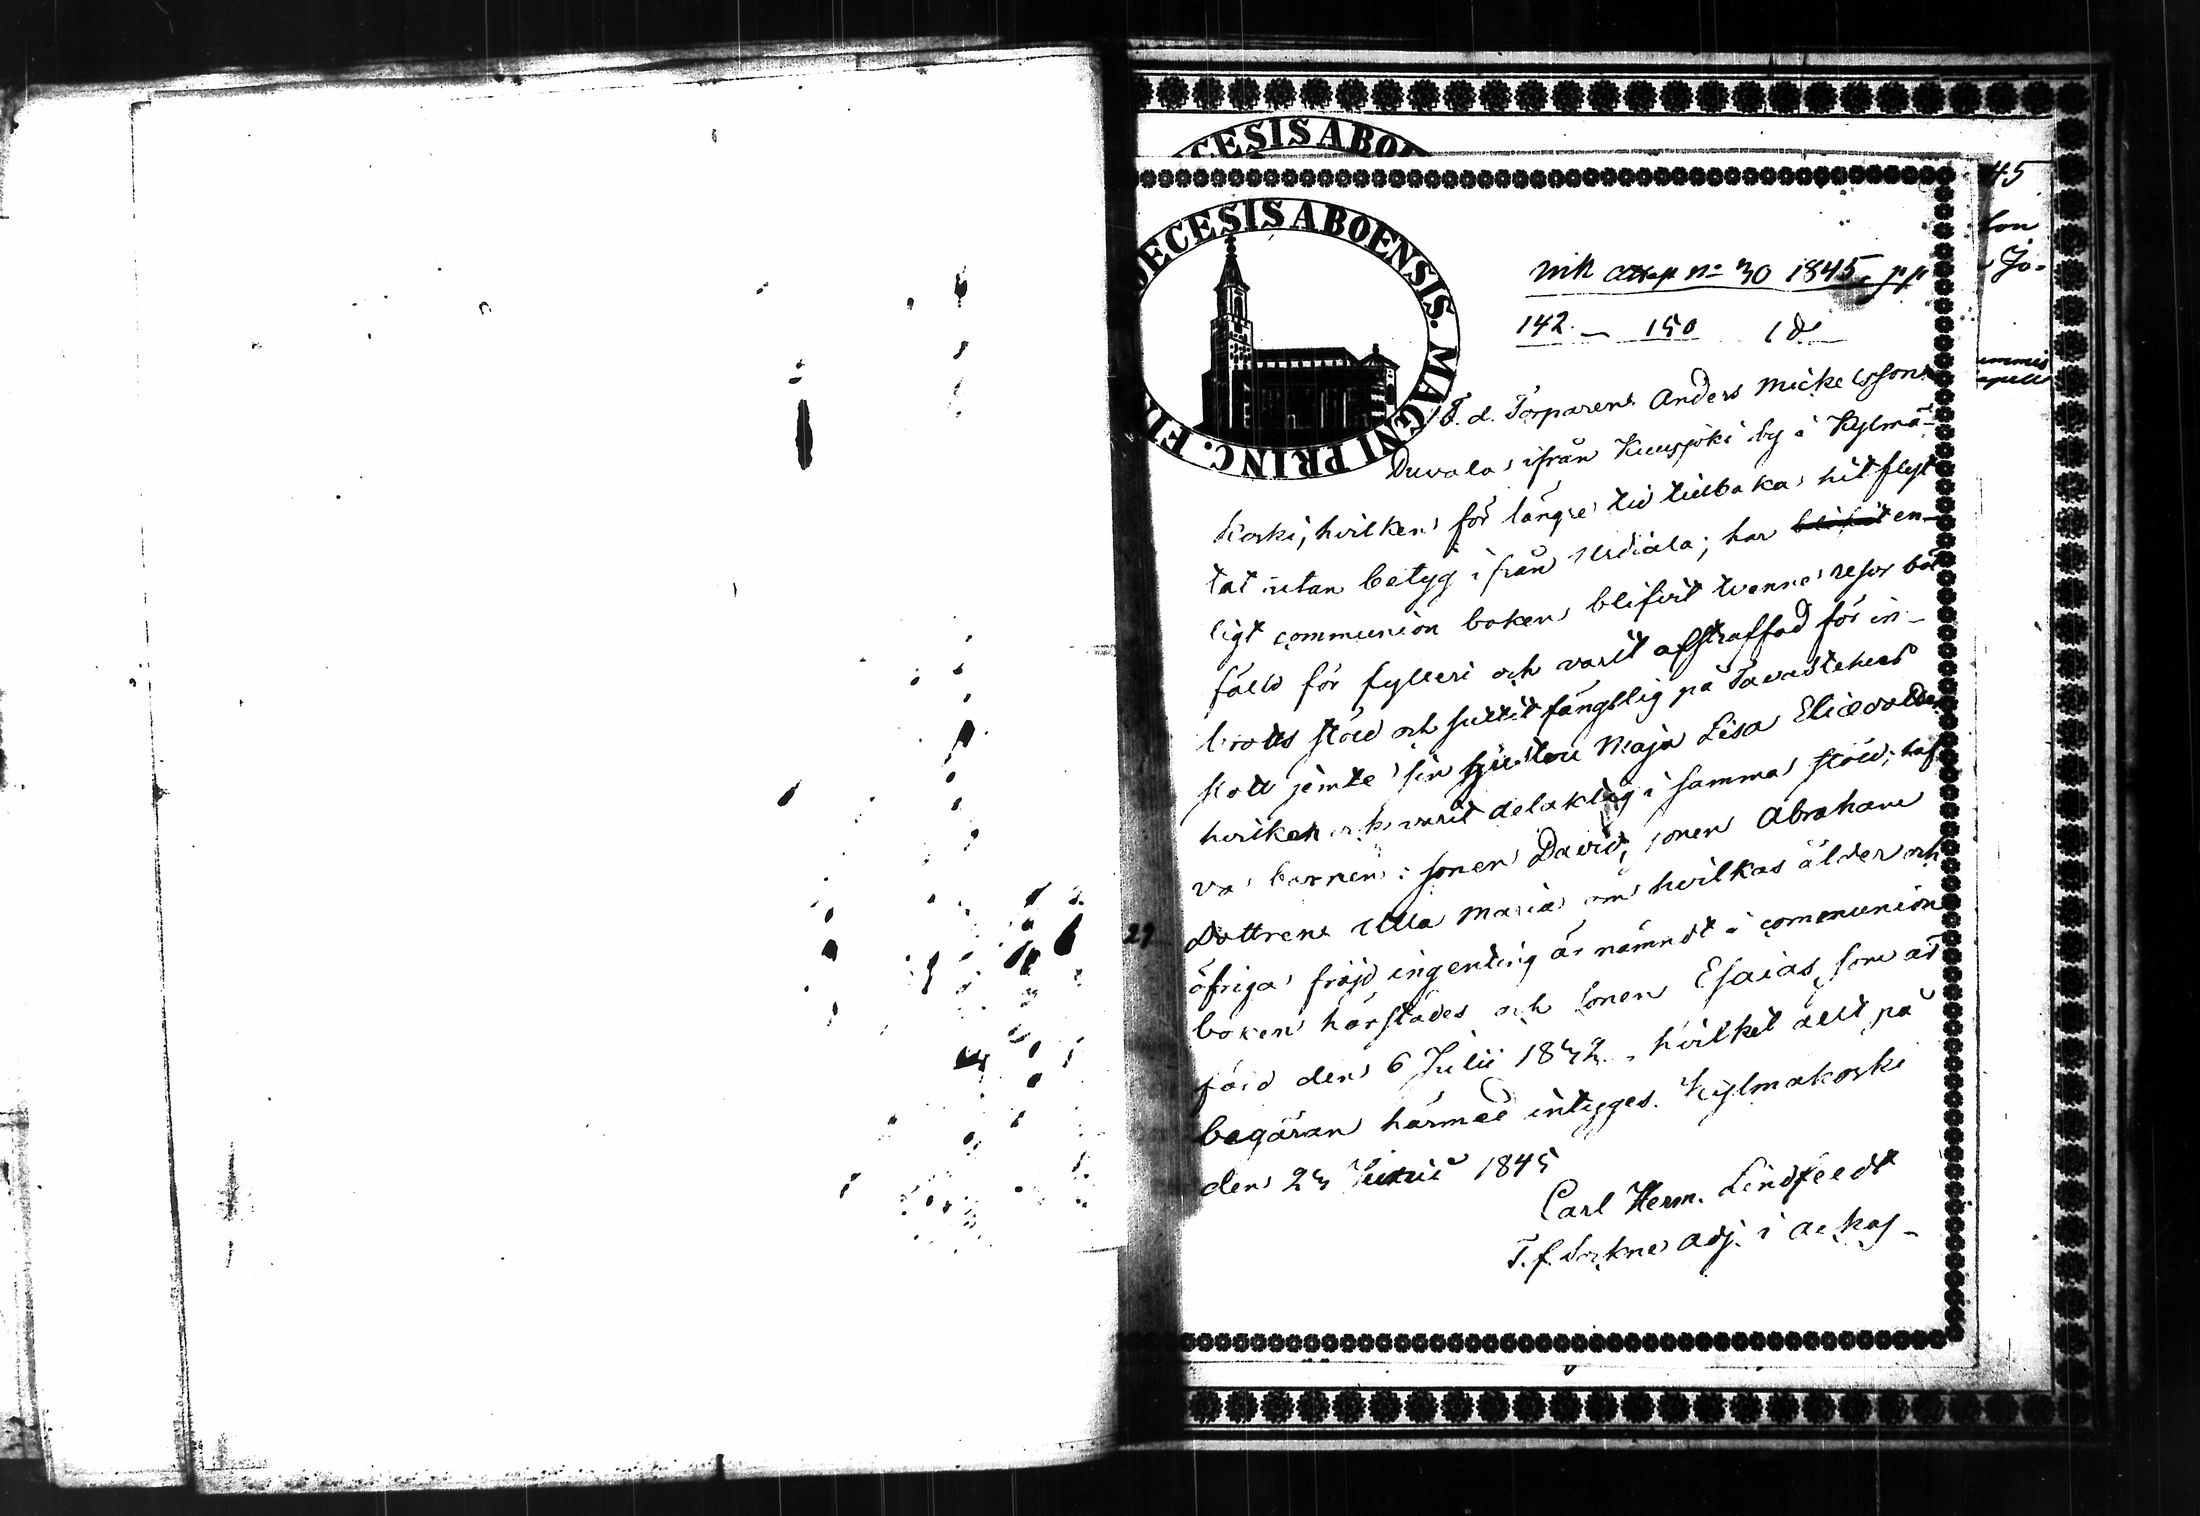 CESIS ABO
DECESIS ABOENSIS. MAGNI PRINC. FI
45
Jo-
No 30 1845, pp
142 - 150
F. d. Torparen Anders Mickelsson
Duvala ifrån Kuusjoki by i Kylmä-
koski, hvilken för längre tid tillbaka hit flyt
tat utan betyg ifrån Urdiala; har blifvit en-
ligt communion boken blifvit tvenne resor bö
fälld för fylleri och varit afstraffad för in-
brotts stöld och suttit fängslig på Tavastehus
slott jemte sin hustru Maja Lisa
hvilken och varit delaktig i samma stöld; haf
va barnen: sonen David, sonen Abraham
Dottren Ulla Maria om hvilkas ålder och
29
öfriga fräjd ingenting är nämndt i communion
boken härstädes och Sonen Esaias, som är
född den 6 Julii 1842, hvilket allt på
begäran härmed intygges. Kylmäkoski
den 23 Junii 1845
Carl Herm. Lindstedt
T. f. Sockne Adj. i Ackas-